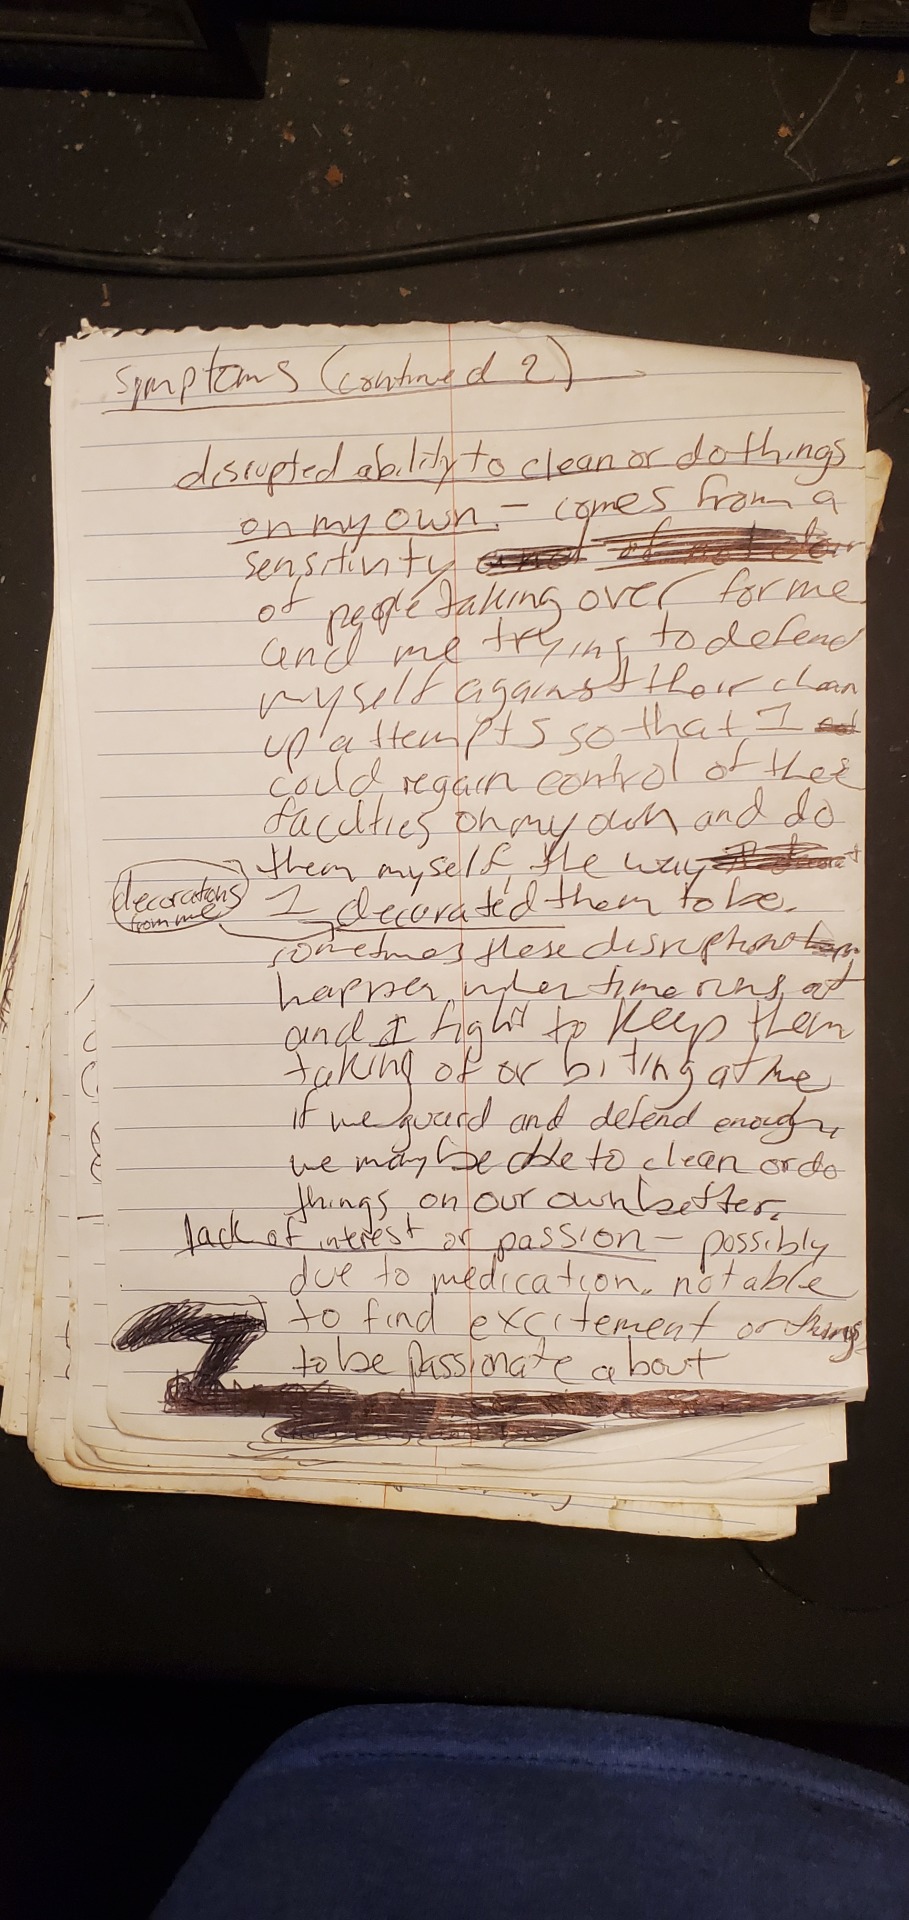 Symptoms (continued 2)
disrupted ability to clean or do things
on my own - comes from a
sensitivity
of people taking over for me
and me trying to defend
myself against their clean
up attempts so that I
could regain control of these
faculties on my own and do
them myself, the way
decorations
from me
I decorated them to be.
sometimes these disruptions
happen when time runs out
and I fight to keep them
taking of or biting at me
if we guard and defend enough,
we may be able to clean or do
things on our own better.
lack of interest or passion - possibly
due to medication. not able
to find excitement or things
to be passionate about